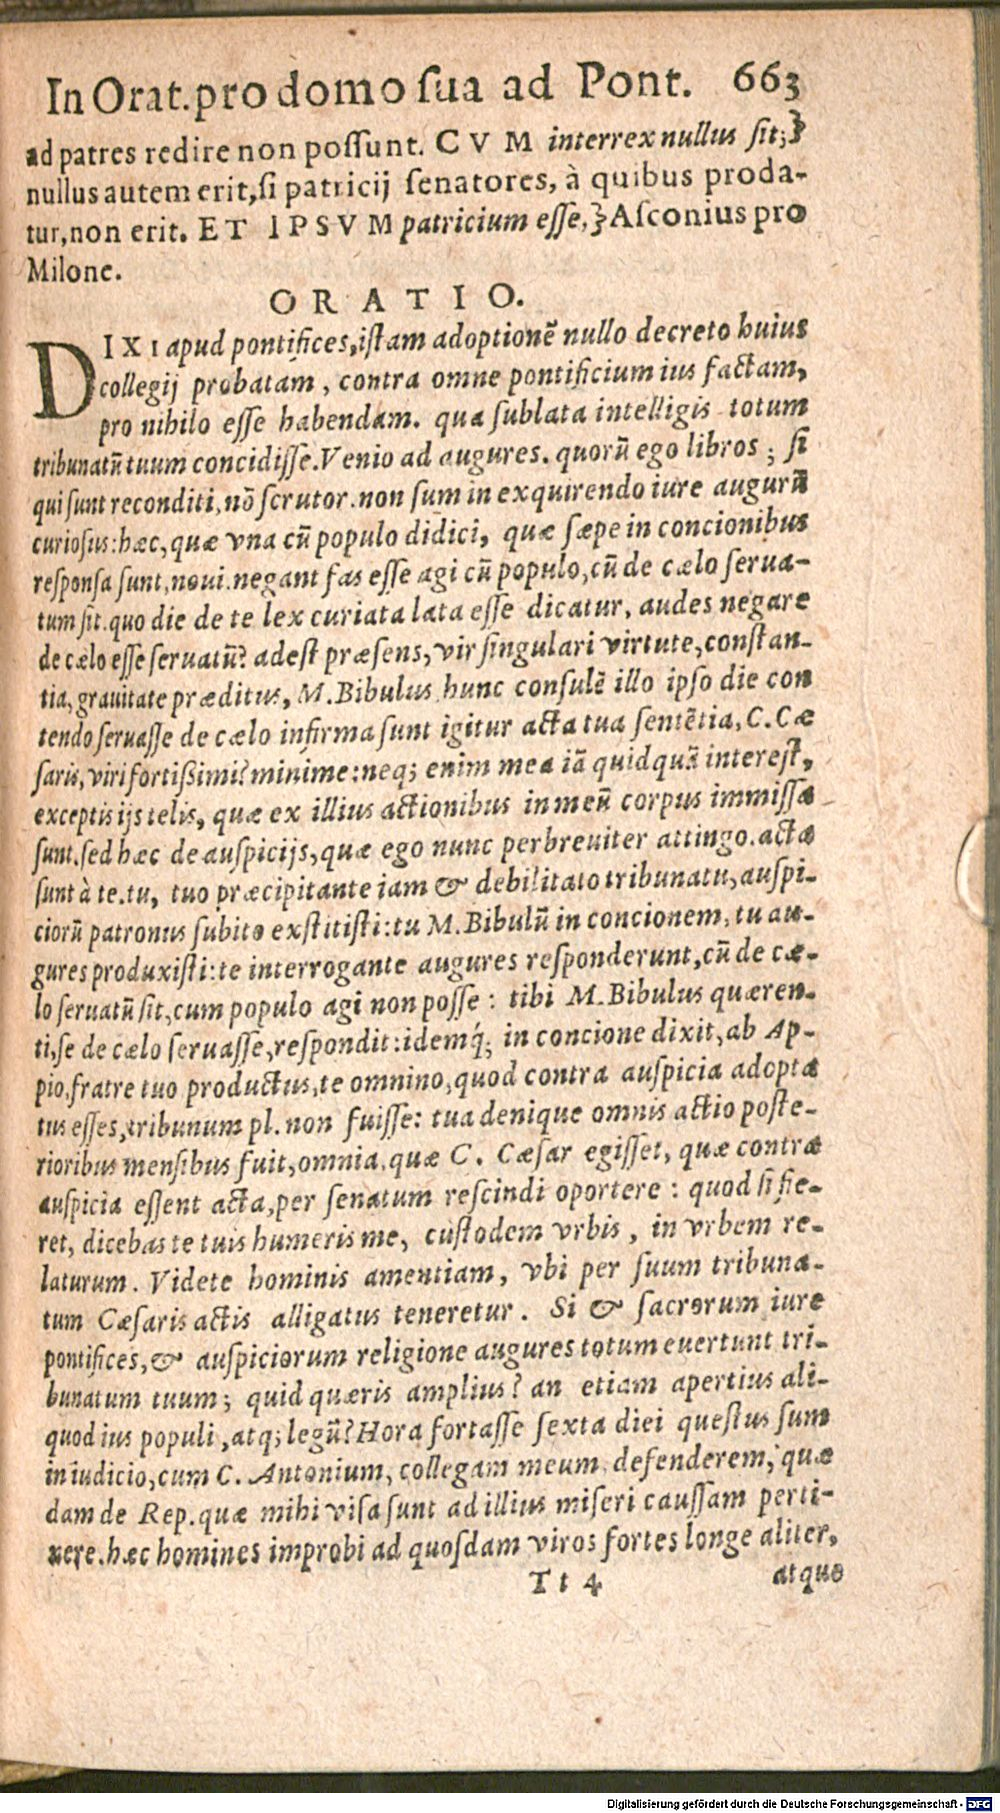 In Orat. pro domo ſua ad Pont. 663
ad patres redire non poſſunt. CVM interrex nullus ſit;}
nullus autem erit, ſi patricij ſenatores, à quibus proda-
tur, non erit. ET IPSVM patricium eſſe,} Aſconius pro
Milone.
ORATIO.
DIXI apud pontifices, iſtam adoptionẽ nullo decreto huius
collegij probatam, contra omne pontificium ius factam,
pro nihilo eſſe habendam. qua ſublata intelligis totum
tribunatũ tuum concidiſſe. Venio ad augures. quorũ ego libros; ſi
qui ſunt reconditi, nõ ſcrutor. non ſum in exquirendo iure augurũ
curioſus: hæc, quæ vna cũ populo didici, quæ ſæpe in concionibus
reſponſa ſunt, noui. negant fas eſſe agi cũ populo, cũ de cælo ſerua-
tum ſit. quo die de te lex curiata lata eſſe dicatur, audes negare
de cælo eſſe ſeruatũ? adeſt præſens, vir ſingulari virtute, conſtan-
tia, grauitate præditus, M. Bibulus hunc conſulẽ illo ipſo die con
tendo ſeruaſſe de cælo infirma ſunt igitur acta tua ſentẽtia, C. Cæ
ſaris, viri fortißimi? minime: neq; enim mea iã quidquã intereſt,
exceptis ijs telis, quæ ex illius actionibus in meũ corpus immiſſa
ſunt. ſed hæc de auſpicijs, quæ ego nunc perbreuiter attingo. acta
ſunt à te. tu, tuo præcipitante iam & debilitato tribunatu, auſpi-
ciorũ patronus ſubito exſtitiſti: tu M. Bibulũ in concionem, tu au-
gures produxiſti: te interrogante augures reſponderunt, cũ de cæ-
lo ſeruatũ ſit, cum populo agi non poſſe: tibi M. Bibulus quæren-
ti, ſe de cælo ſeruaſſe, reſpondit: idemq́; in concione dixit, ab Ap-
pio, fratre tuo productus, te omnino, quod contra auſpicia adopta
tus eſſes, tribunum pl. non fuiſſe: tua denique omnis actio poſte-
rioribus menſibus fuit, omnia, quæ C. Cæſar egiſſet, quæ contra
auſpicia eſſent acta, per ſenatum reſcindi oportere: quod ſi fie-
ret, dicebas te tuis humeris me, cuſtodem vrbis, in vrbem re-
laturum. Videte hominis amentiam, vbi per ſuum tribuna-
tum Cæſaris actis alligatus teneretur. Si & ſacrorum iure
pontifices, & auſpiciorum religione augures totum euertunt tri-
bunatum tuum; quid quæris amplius? an etiam apertius ali-
quod ius populi, atq; legũ? Hora fortaſſe ſexta diei queſtus ſum
in iudicio, cum C. Antonium, collegam meum, defenderem, quæ
dam de Rep. quæ mihi viſa ſunt ad illius miſeri cauſſam perti-
nere. hæc homines improbi ad quoſdam viros fortes longe aliter,
Tt 4 atque
Digitalisierung gefördert durch die Deutsche Forschungsgemeinschaft - DFG